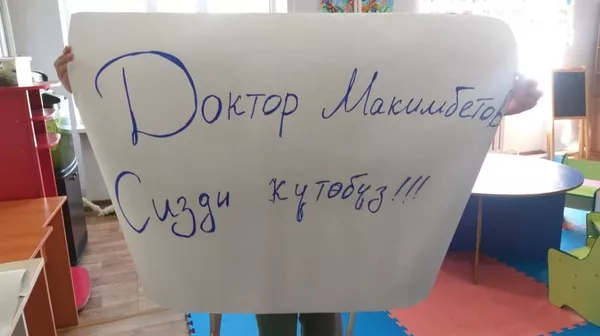 Доктор Макимбетов
Сизди күтөбүз!!!